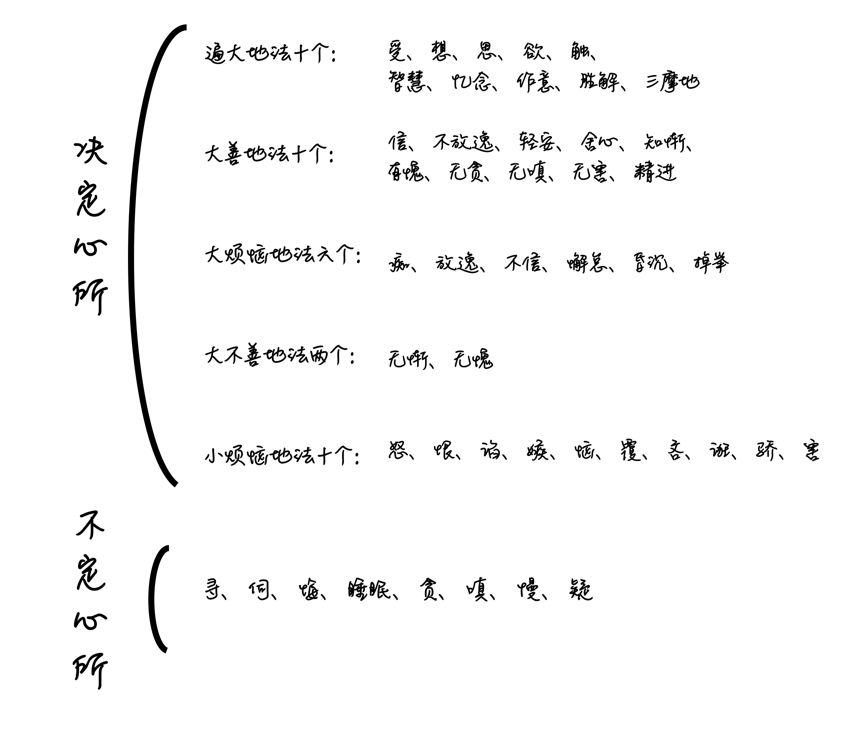 决定心所
遍大地法十个：
受、想、思、欲、触、
智慧、忆念、作意、胜解、三摩地
大善地法十个：
信、不放逸、轻安、舍心、知惭、
有愧、无贪、无嗔、无害、精进
大烦恼地法六个：
痴、放逸、不信、懈怠、昏沉、掉举
大不善地法两个：
无惭、无愧
小烦恼地法十个：
怒、恨、谄、嫉、恼、覆、吝、诳、骄、害
不定心所
寻、伺、悔、睡眠、贪、嗔、慢、疑